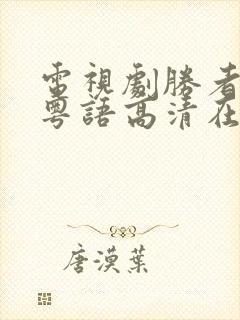 電視劇勝者
粵語高清在
唐漠葉